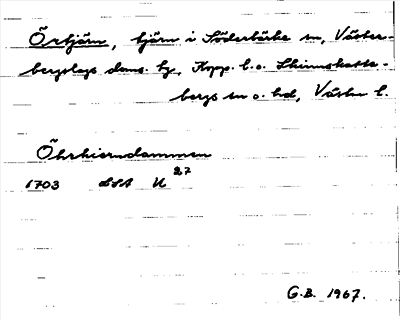 Örtjärn, tjärn i Söderbärke sn, Väster-
bergslags doms. hg, Kopp. l. o. Skinnskatte-
bergs sn o. hd, Västm l.
Öhrkierndammen
1703 LSA U 27
G.B. 1967.